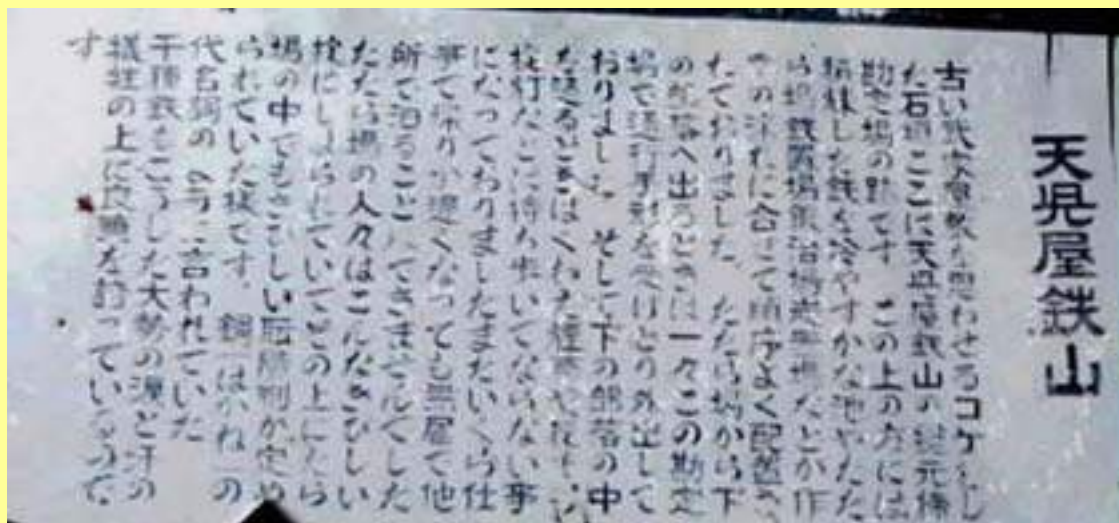 天児屋鉄山
古い歴史景観を思わせるコケむし
た石垣ここに天児屋鉄山の元締
勘定場の跡です この上の方には
精錬した鉄を冷やすかな池やたた
ら場鉄置場鍛冶場などが作
業の流れに合せて順序よく配置さ
れておりました たたら場から下
の部落へ出るときは一々この勘定
場で通行手形を受けとり外出して
おりました そして下の部落の中
を通るときはくわえ煙草や夜も
提灯など持ち歩いてならない事
になっておりましたまたいくら仕
事で帰りが遅くなっても無届で他
所で泊ることはできませんでした
たたら場の人々はこんなきびしい
掟にしばられていてその上にたたら
場の中でもきびしい罰が定め
られていた様です。 鋼(はがね)の
代名詞の様に言われていた
千種鉄もこうした大勢の涙と汗の
犠牲の上に
す